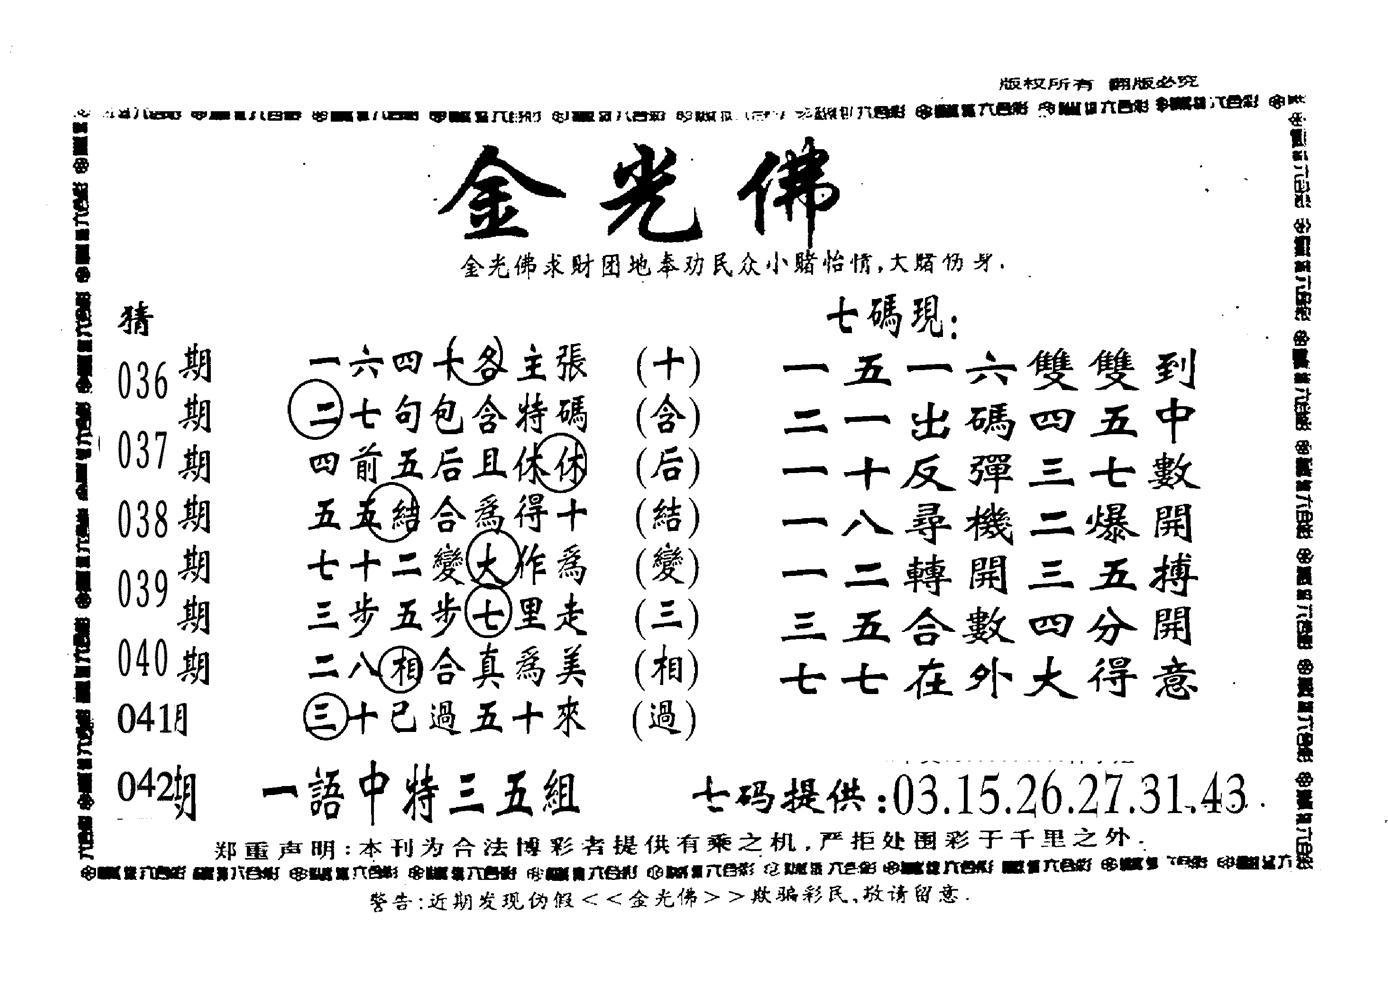 版权所有 翻版必究
金光佛
金光佛求财团地奉劝民众小赌怡情,大赌伤身.
猜
七碼現:
036期 一六四十各主張 (十)
期 二七句包含特碼 (含)
037
期 四前五后且休休 (后)
038期 五五結合為得十 (結)
期 七十二變大作為 (變)
039
期 三步五步七里走 (三)
040期 二八相合真為美 (相)
041期 三十已過五十來 (過)
一五一六雙雙到
二一出碼四五中
一十反彈三七數
一八尋機二爆開
一二轉開三五搏
三五合數四分開
七七在外大得意
042期 一語中特三五組 七码提供:03.15.26.27.31.43
郑重声明:本刊为合法博彩者提供有乘之机,严拒处围彩于千里之外.
警告:近期发现伪假<<金光佛>>欺骗彩民,敬请留意.